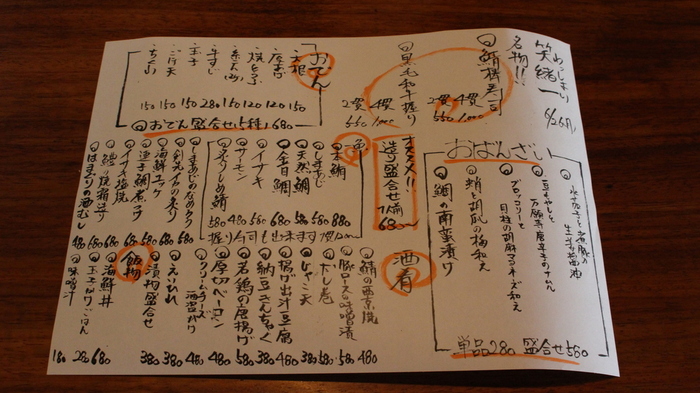 いらっしゃいませ
笑緒一
6/26(月)
名物!!
鯖棒寿司
2貫 4貫
550 1,000
黒毛和牛握り
2貫 4貫
550 1,000
おでん
・大根 150
・厚あげ 120
・焼とうふ 120
・糸こん 150
・牛すじ 280
・玉子 150
・ごぼ天 150
・ちくわ 150
おでん盛合せ(5種) 680
おばんざい
水茄子と蒸し豚の生姜醤油
豆もやしと万願寺唐辛子のナムル
ブロッコリーと貝柱の胡麻マヨネーズ和え
蛸と胡瓜の梅和え
鯛の南蛮漬け
単品280 盛合せ580
オススメ!!
造り盛合せ
1人前
680〜
一魚
本鯛 880
しまあじ 580
天然鯛 580
金目鯛 680
イサキ 580
サーモン 480
炙りしめ鯖 580
握り寿司も出来ます
しまあじのなめろう 580
剣先イカの炙り 580
海鮮ユッケ 580
イサキ塩焼 680
はまぐりの酒むし 480
酒肴
鯖の西京焼 480
豚ロースの味噌漬 580
だし巻 580
じゃこ天 380
揚げ出汁豆腐 480
納豆きんちゃく 380
若鶏の唐揚げ 580
厚切ベーコン 480
クリームチーズ酒盗がけ 480
えいひれ 380
漬物盛合せ 380
飯物
海鮮丼 680
玉子かけごはん 280
味噌汁 180